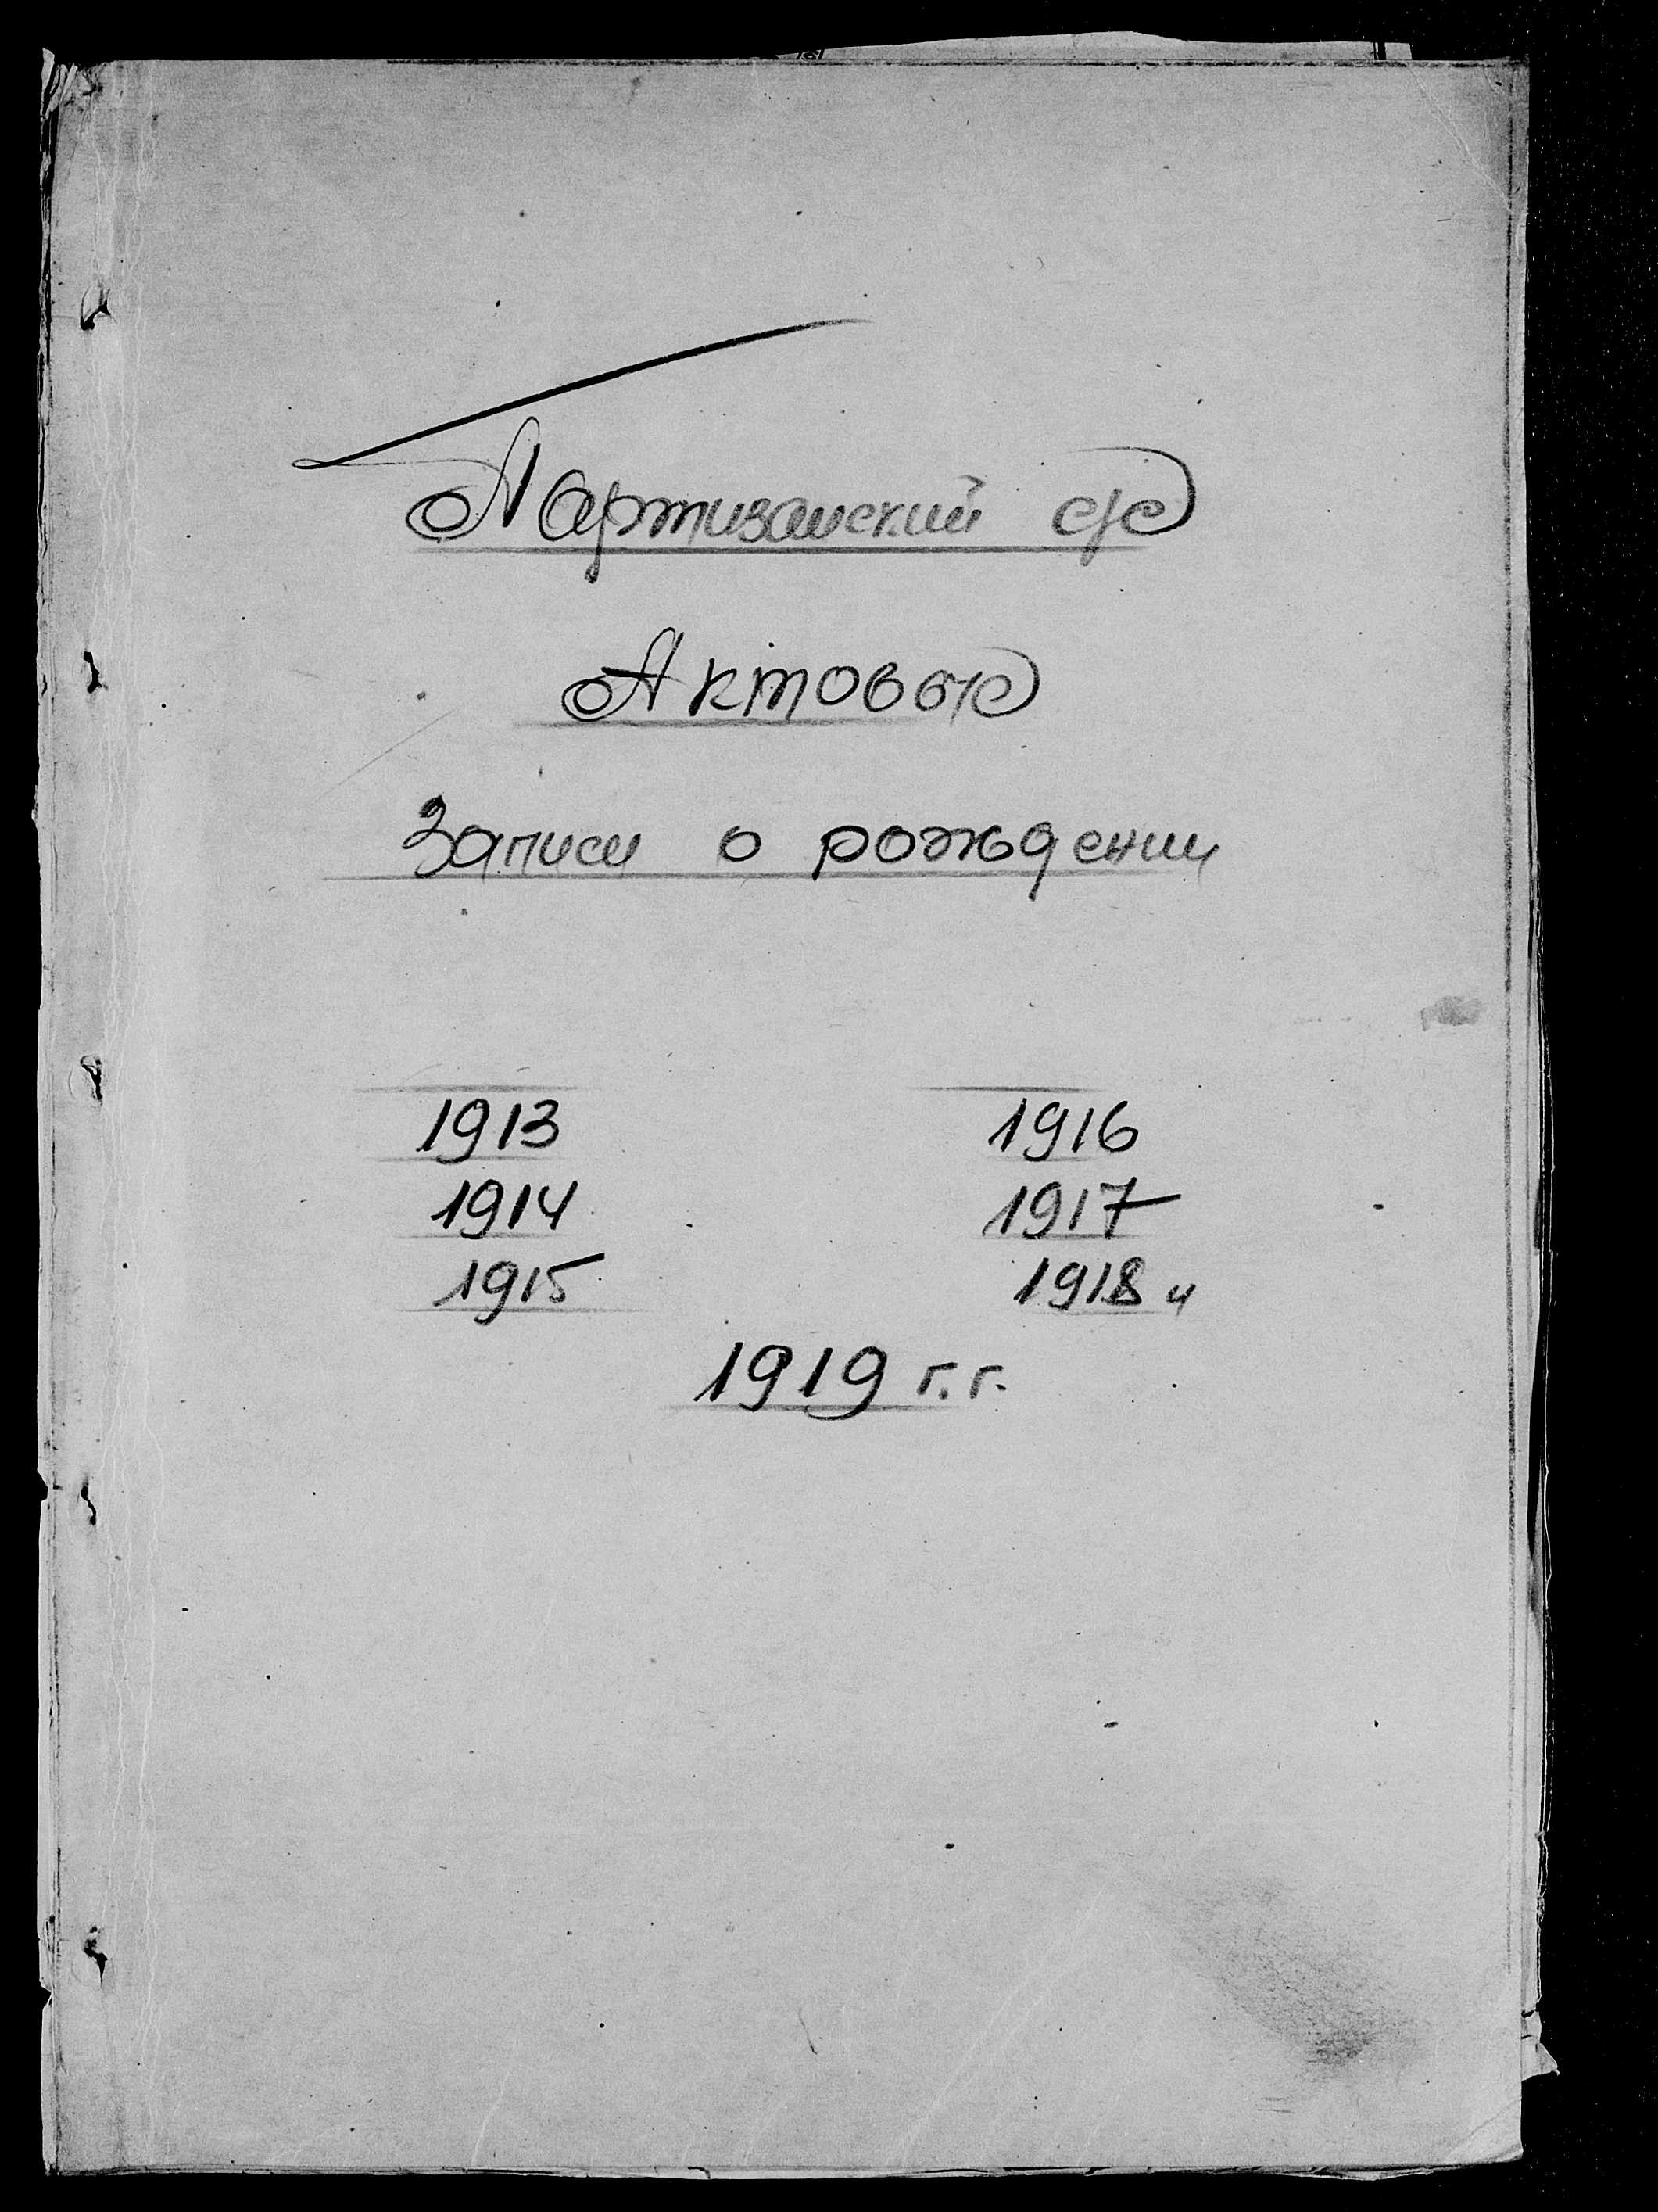 Партизанский с/с
Актовые
Записи о рождении
1913 1916
1914 1917
1915 1918 и
1919 г.г.